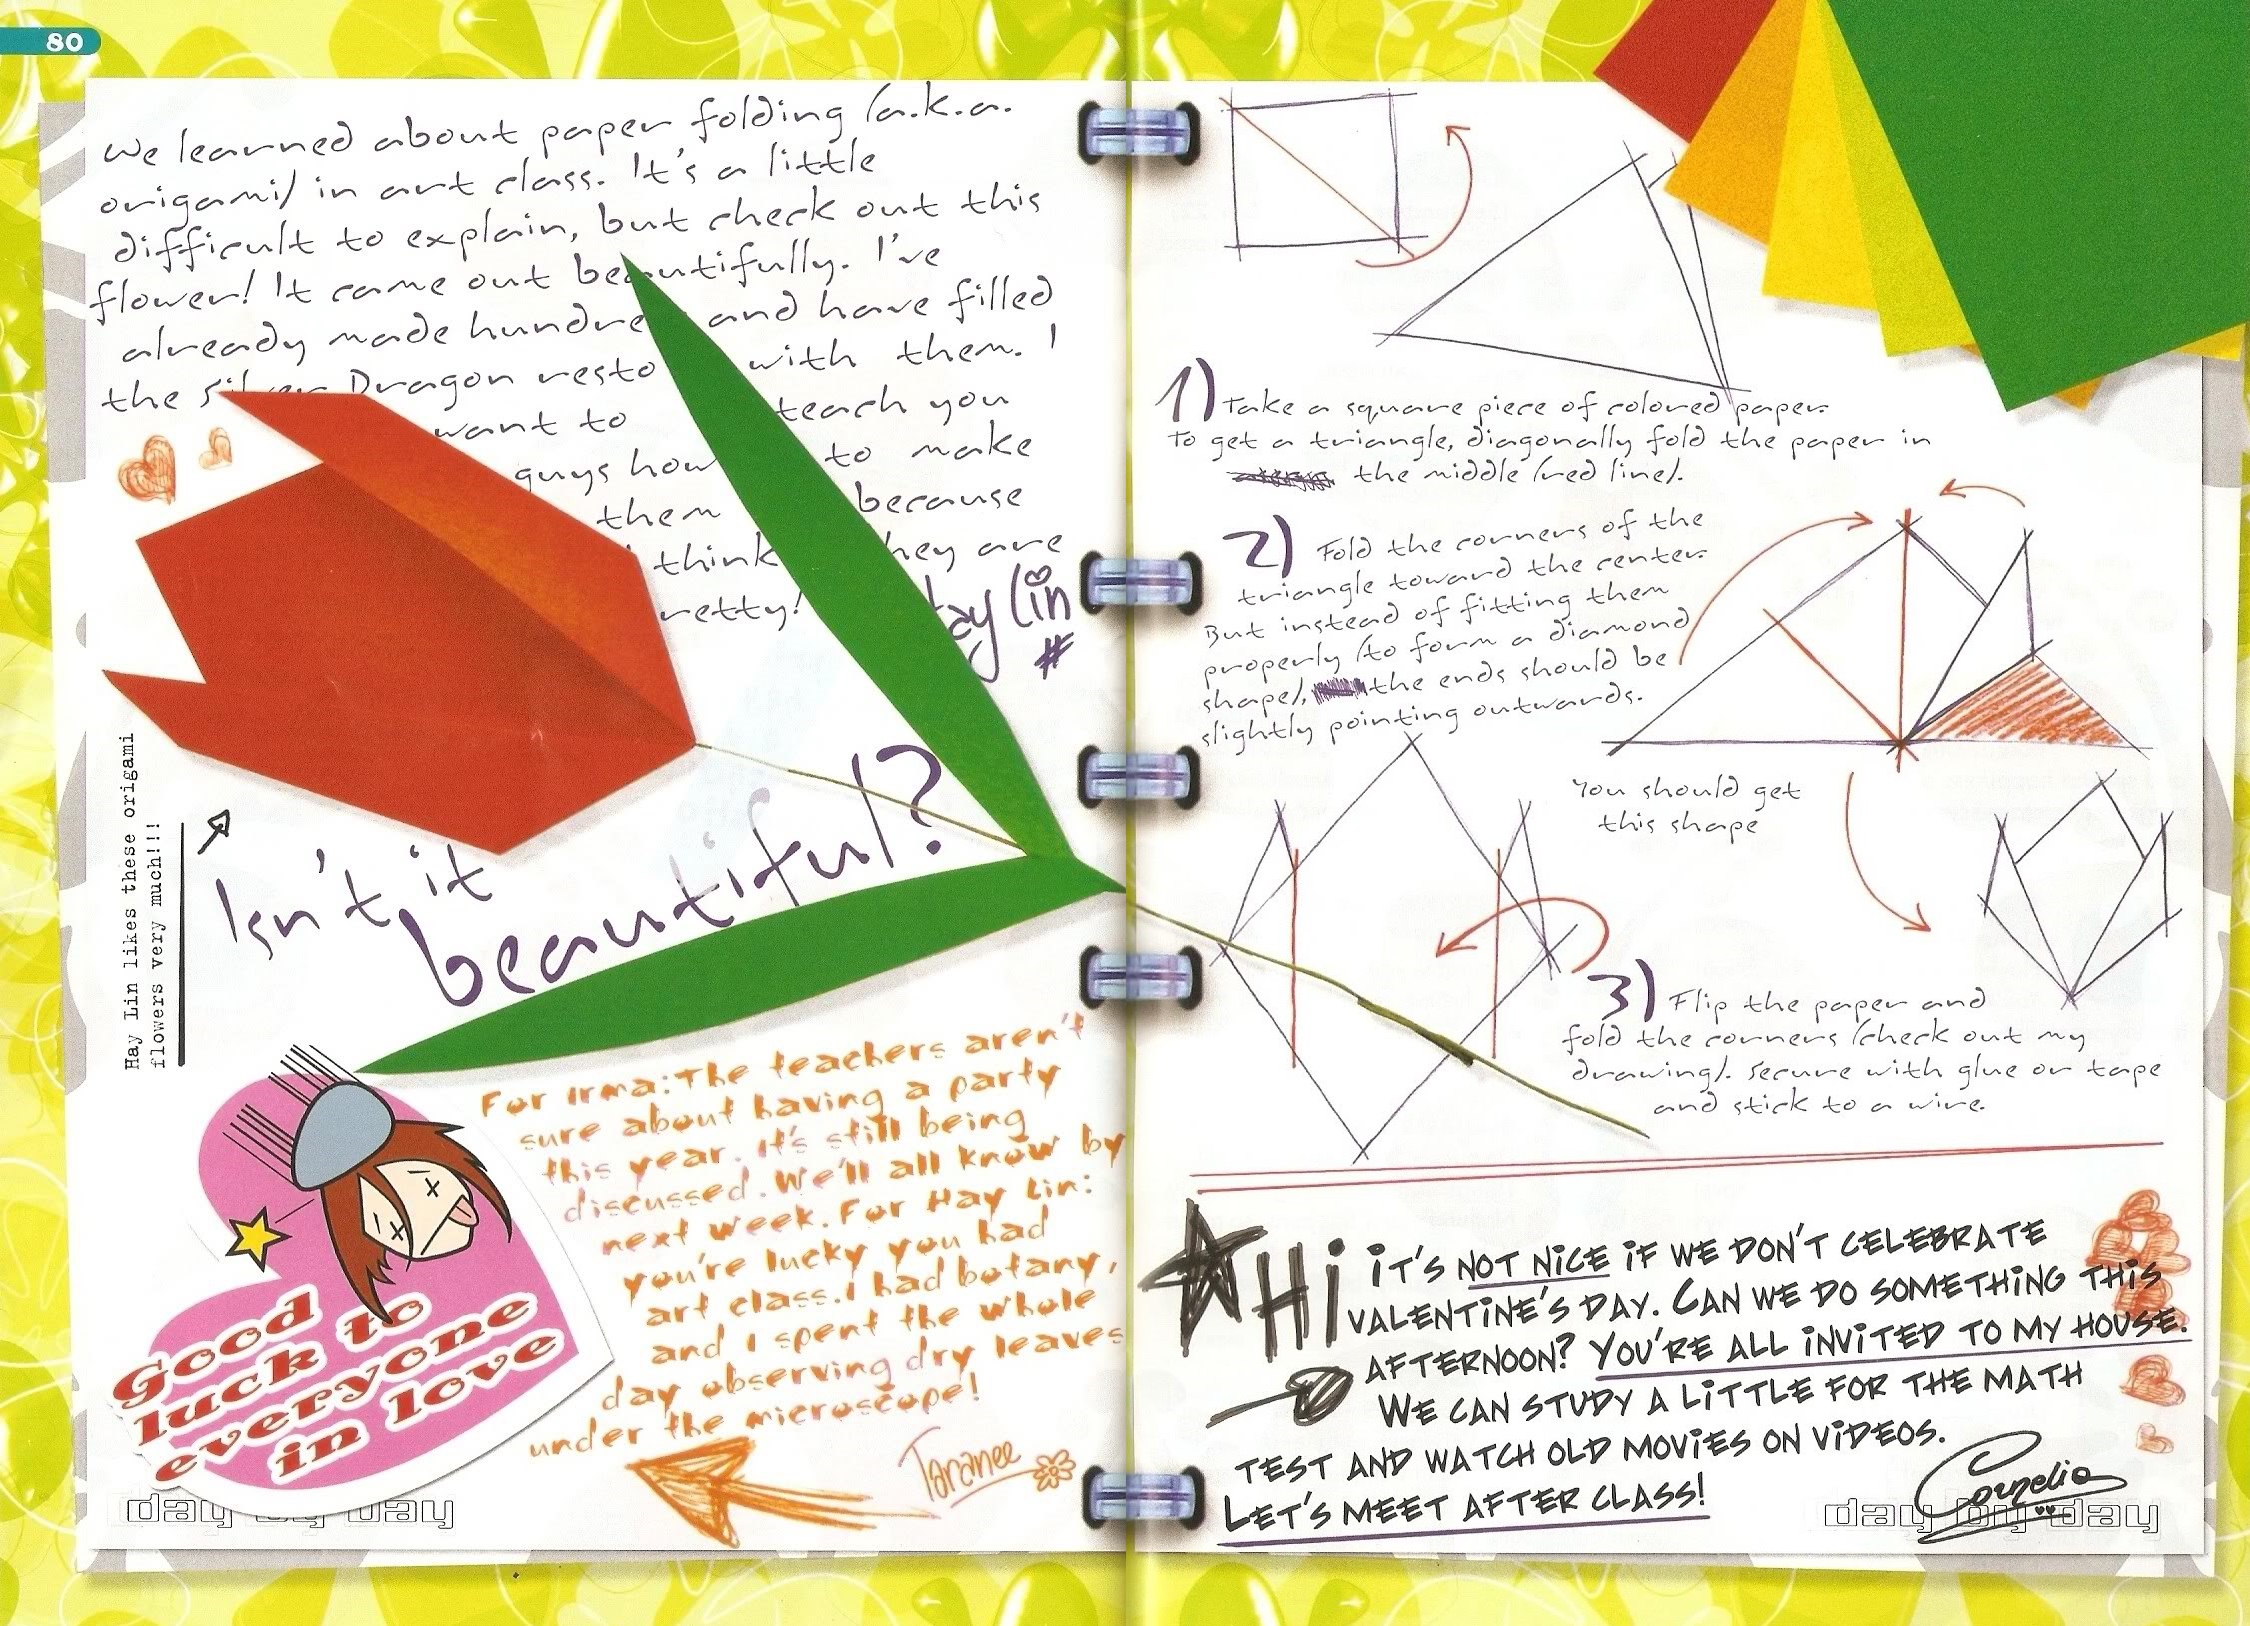 80
We learned about paper folding (a.k.a.
origami) in art class. It's a little
difficult to explain, but check out this
flower! It came out beautifully. I've
already made hundre and have filled
the Silver Dragon resto with them. I
want to teach you
guys how to make
them because
I think hey are
retty!
ay Lin
#
Hay Lin likes these origami
flowers very much!!!
Isn't it
beautiful?
Good
luck to
everyone
in love
For Irma: The teachers aren't
sure about having a party
this year. It's still being
discussed. We'll all know by
next week. For Hay Lin:
you're lucky you had
art class. I had botany,
and I spent the whole
day observing dry leaves
under the microscope!
Taranee
day by day
1) Take a square piece of colored paper.
To get a triangle, diagonally fold the paper in
the middle (red line).
2) Fold the corners of the
triangle toward the center.
But instead of fitting them
properly (to form a diamond
shape), the ends should be
slightly pointing outwards.
You should get
this shape
3) Flip the paper and
fold the corners (check out my
drawing). Secure with glue or tape
and stick to a wire.
Hi IT'S NOT NICE IF WE DON'T CELEBRATE
VALENTINE'S DAY. CAN WE DO SOMETHING THIS
AFTERNOON? YOU'RE ALL INVITED TO MY HOUSE.
WE CAN STUDY A LITTLE FOR THE MATH
TEST AND WATCH OLD MOVIES ON VIDEOS.
LET'S MEET AFTER CLASS!
Cornelia
day by day